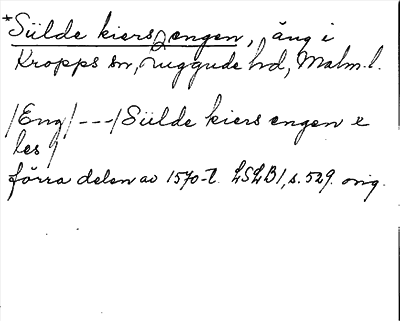 *Sülde kiers engen, äng i
Kropps sn, Luggude hd, Malm. l.
/Eng/---/Sülde kiers engen
les/
förra delen av 1570-t. LSLB1, s. 529. orig.